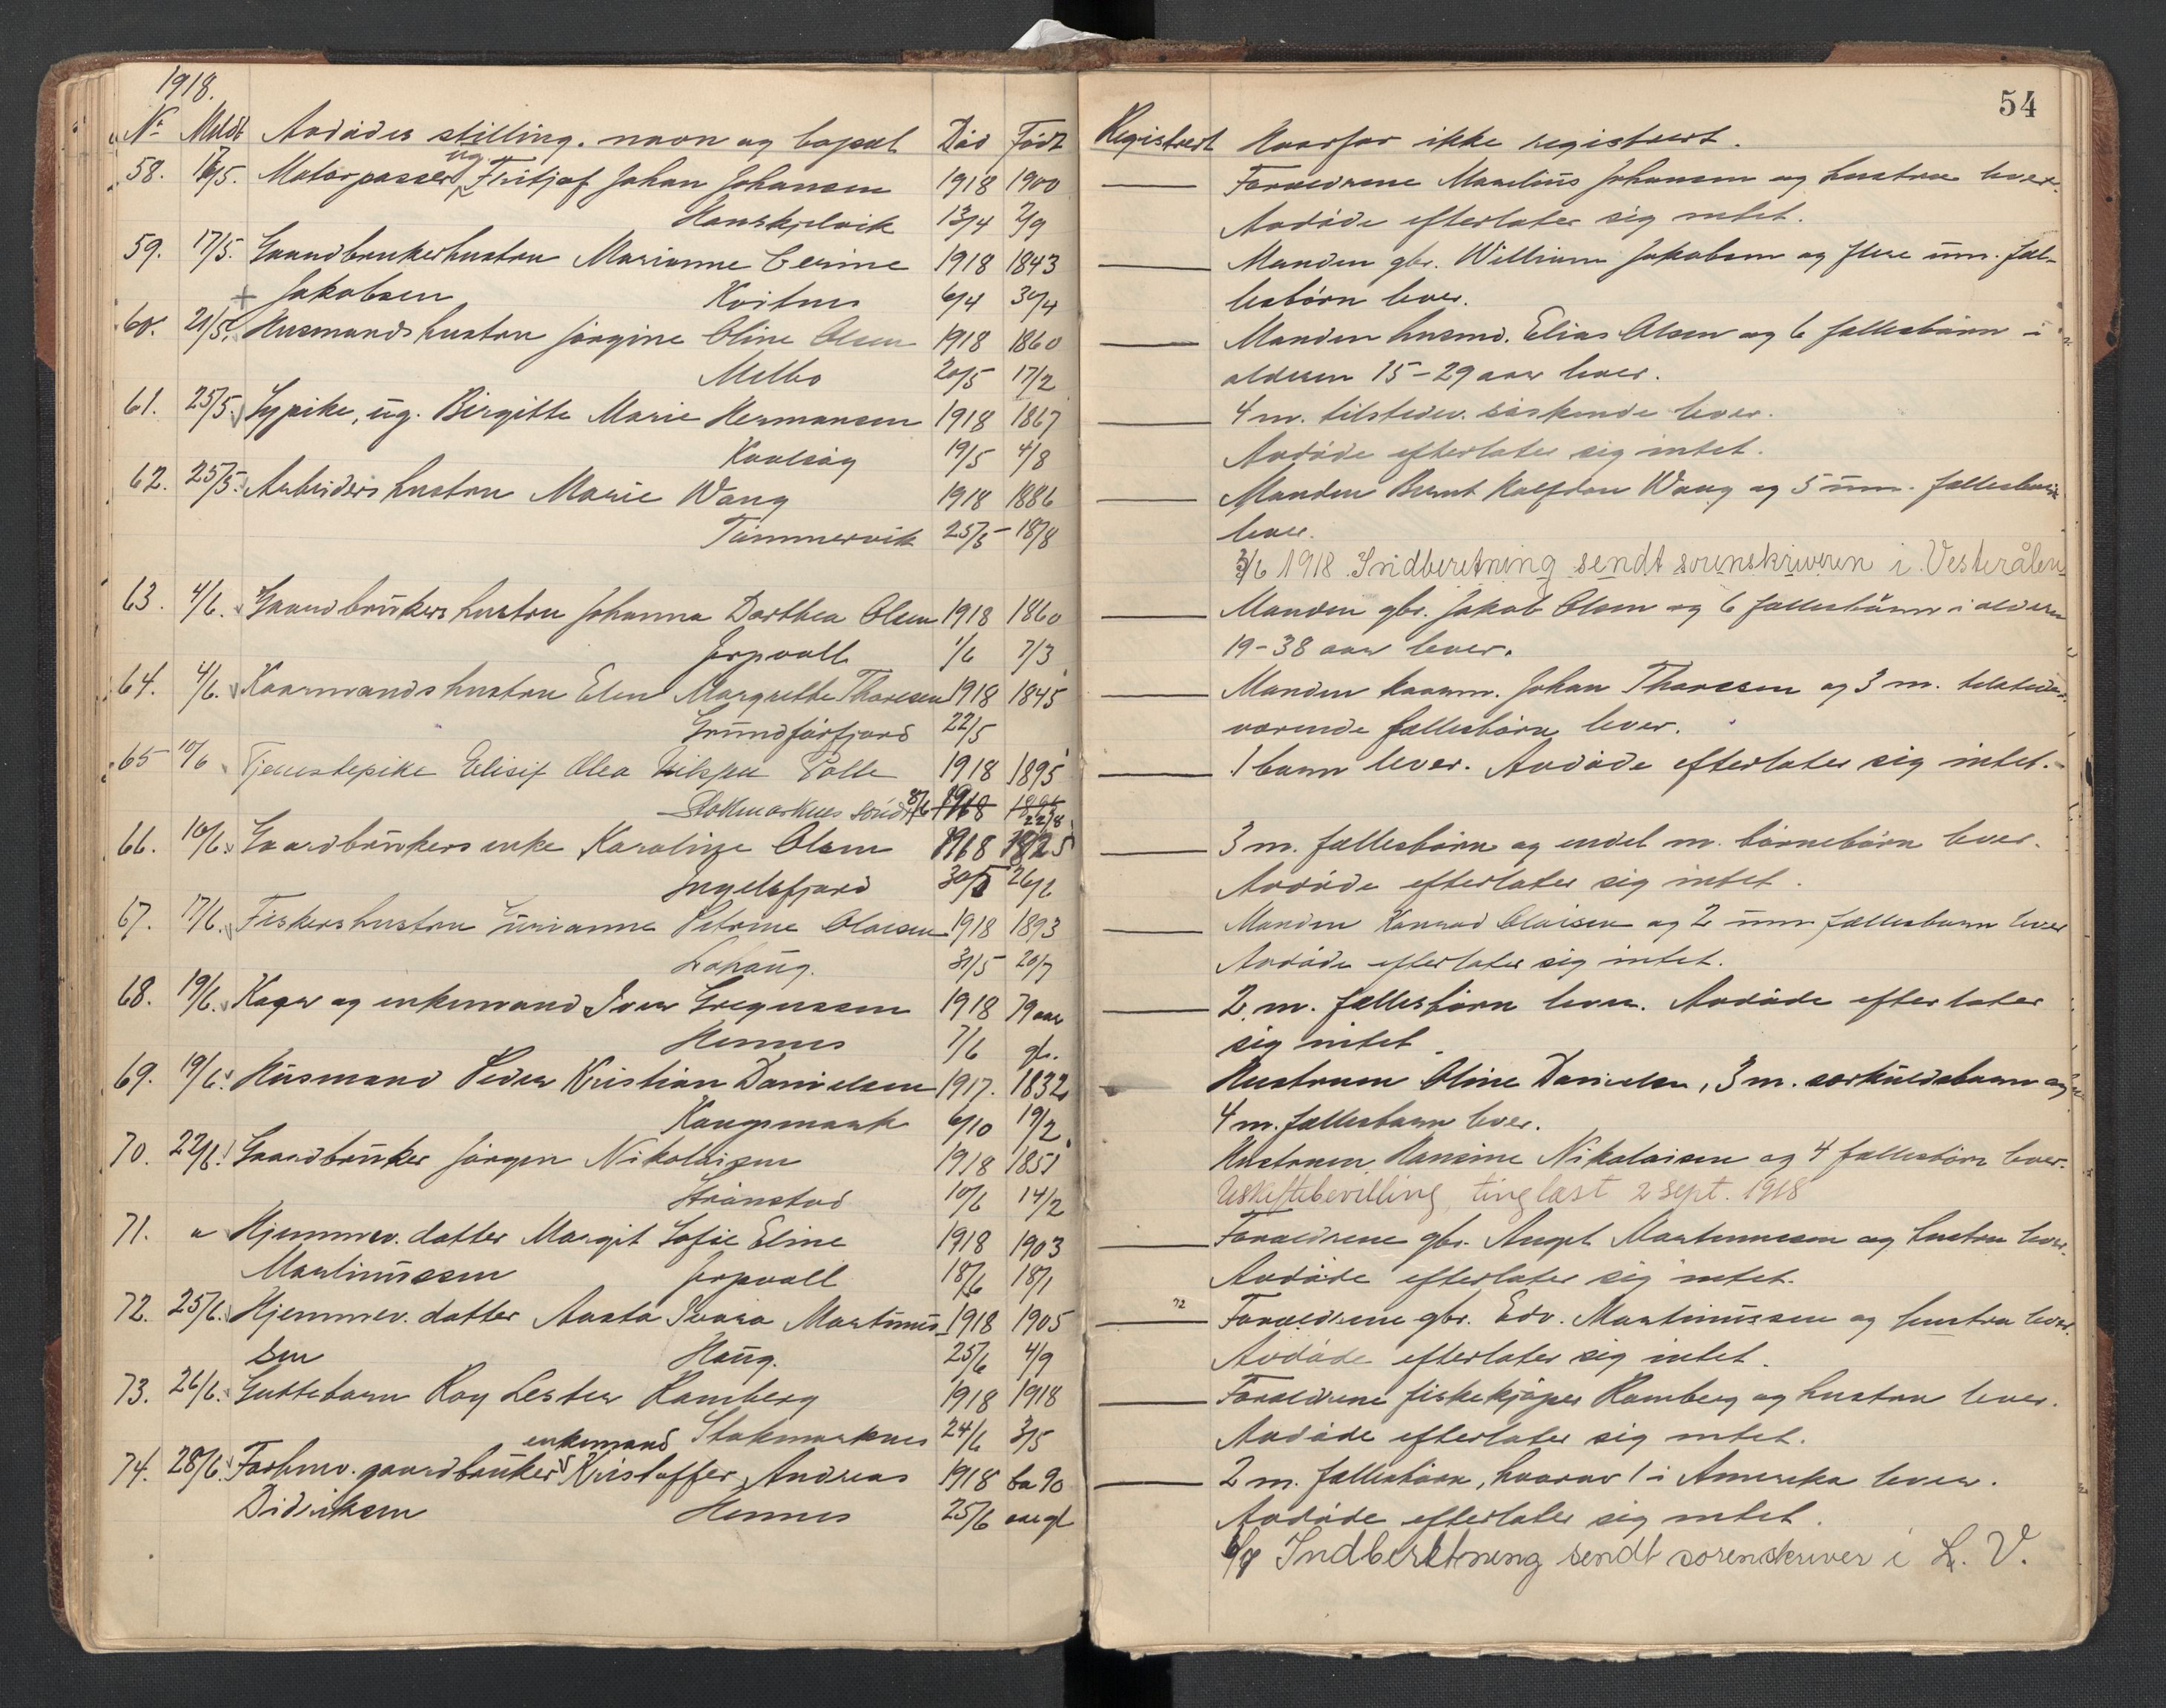 1918.
No Meldt Avdødes stilling, navn og bopæl Død Født
58. 17/5. Motorpasser ug. Fritjof Johan Johansen 1918 1900
13/4 2/9
59. 17/5. Gaardbrukerhustru Marianne Cecine 1918 1843
+ Jakobsen Kvitnes 6/4 30/4
60. 21/5. Husmandshustru Jørgine Oline Olsen 1918 1860
Melbo 20/5 17/2
61. 25/5. Sypike, ug. Birgitte Marie Hermansen 1918 1867
Kaalsøy 19/5 4/8
62. 25/5. Arbeiders hustru Marie Wang 1918 1886
Tømmervik 25/5 18/8
63. 4/6. Gaardbrukers hustru Johanna Dorthea Olsen 1918 1860
Jørpvoll 1/6 7/3
64. 4/6. Kaarmands hustru Elen Margrethe Thoresen 1918 1845
Grundførfjord 22/5
65 10/6 Tjenestepike Elisif Olea 1918 1895
Stokmarknes 8/6 22/8
66. 10/6. Gaardbrukers enke Karoline Olsen 1918 1825
Ingelsfjord 30/5 26/6
67. 17/6. Fiskershustru Petrine Olaisen 1918 1893
31/5 20/7
68. 19/6. Kaar og enkemand Iver Gregussen 1918 79 aar
Hennes 7/6 gl.
69. 19/6. Husmand Peder Kristian Danielsen 1917. 1832
Kongsmark 6/10 19/2
70. 22/6. Gaardbruker Jørgen Nikolaisen 1918 1851
Strønstad 10/6 14/2
71. " Hjemmev. datter Margit Sofie Eline 1918 1903
Martinussen Jørpvoll 18/6 18/1
72. 25/6. Hjemmev. datter Aasta Ivara Martinus- 1918 1905
sen Haug. 25/6 4/9
73. 26/6. Guttebarn Roy Lester Ramberg 1918 1918
Stokmarknes 24/6 3/5
74. 28/6. Forhenv. gaardbruker enkemand Kristoffer Andreas 1918 ca 90
Didriksen Hennes 25/6 aar gl
54
Registrert Hvorfor ikke registrert.
Foreldrene Marelius Johansen og hustru lever.
Avdøde efterlater sig intet.
Manden gbr. William Jakobsen og flere um. fæl-
lesbørn lever.
Manden husmd. Elias Olsen og 6 fællesbørn i
alderen 15-29 aar lever.
4 m. tilstedev. søskende lever.
Avdøde efterlater sig intet.
Manden Bernt Halfdan Wang og 5 um. fællesbørn
lever.
3/6 1918 Indberetning sendt sorenskriveren i Vesterålen
Manden gbr. Jakob Olsen og 6 fællesbørn i alderen
19-38 aar lever.
Manden kaarm. Johan Thoressen og 3 m. tilstede-
værende fællesbørn lever.
1 barn lever. Avdøde efterlater sig intet.
3 m. fællesbørn og endel m. børnebørn lever.
Avdøde efterlater sig intet.
Manden Konrad Olaisen og 2 um. fællesbarn lever
Avdøde efterlater sig intet.
2 m. fællesbørn lever. Avdøde efterlater
sig intet.
Hustruen Oline Danielsen, 3 m. særkuldsbarn og
4 m. fællesbarn lever.
Hustruen Hansine Nikolaisen og 4 fællesbørn lever.
Uskiftebevilling tinglæst 2 sept. 1918
Foreldrene gbr. Angel Martinussen og hustru lever.
Avdøde efterlater sig intet.
72 Foreldrene gbr. Edv. Martinussen og hustru lever.
Avdøde efterlater sig intet.
Foreldrene fiskekjøper Ramberg og hustru lever.
Avdøde efterlater sig intet.
2 m. fællesbørn, hvorav 1 i Amerika lever.
Avdøde efterlater sig intet.
Indberetning sendt sorenskriver i L. V.